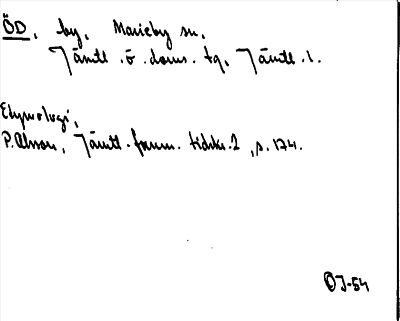 ÖD, by, Marieby sn,
Jämtl. ö. doms. tg, Jämtl. l.
Etymologi,
P. Olsson, Jämtl. fornm. tidskr. 2, s. 174.
OJ-54